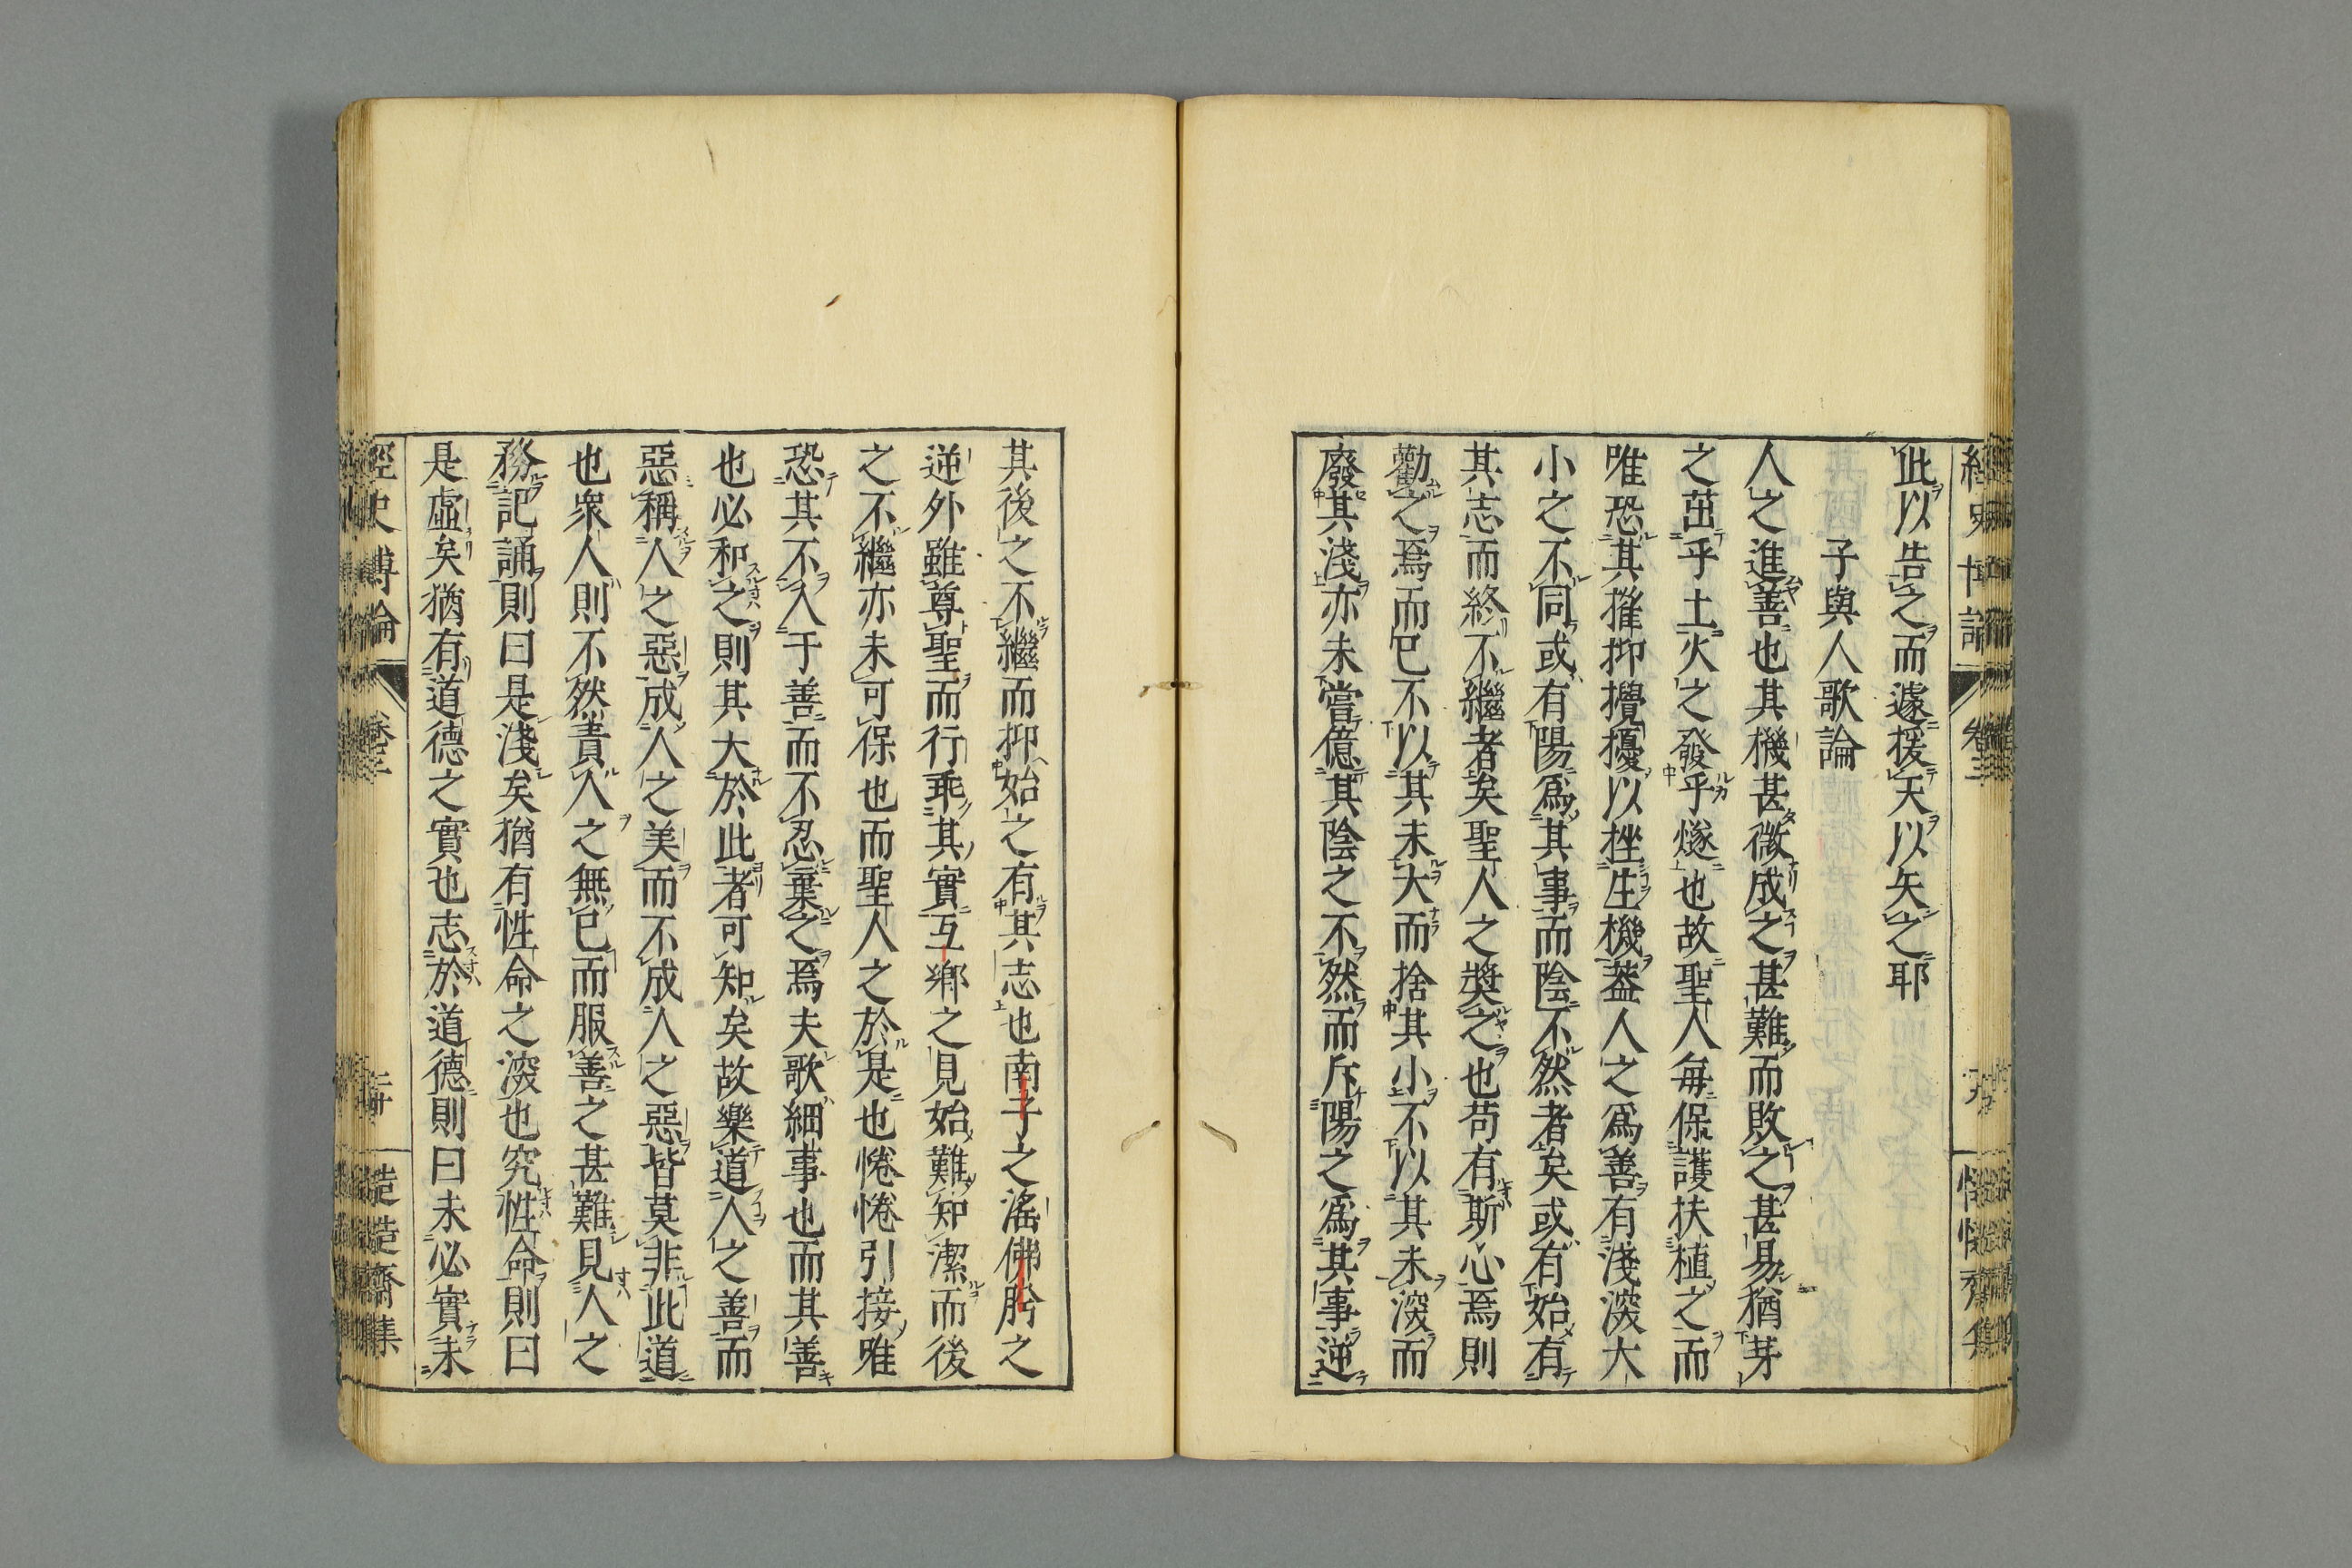 此以告之而遽援天以矢之耶
子與人歌論
人之進善也其機甚微成之甚難而敗之甚易猶芽
之茁乎土火之發乎燧也故聖人毎保護扶植之而
唯恐其摧抑攪擾以挫生機葢人之爲善有淺深大
小之不同或有陽爲其事而陰不然者矣或有始有
其志而終不繼者矣聖人之奬之也苟有斯心焉則
勸之焉而已不以其未大而捨其小不以其未深而
廢其淺亦未嘗億其陰之不然而斥陽之爲其事逆
其後之不繼而抑始之有其志也南子之滛佛肸之
逆外雖尊聖而行乖其實互鄉之見始難知潔而後
之不繼亦未可保也而聖人之於是也惓惓引接唯
恐其不入于善而不忍棄之焉夫歌細事也而其善
也必和之則其大於此者可知矣故樂道人之善而
惡稱人之惡成人之美而不成人之惡皆莫非此道
也衆人則不然責人之無已而服善之甚難見人之
務記誦則曰是淺矣猶有性命之深也究性命則曰
是虛矣猶有道德之實也志於道德則曰未必實未
經史博論
卷三